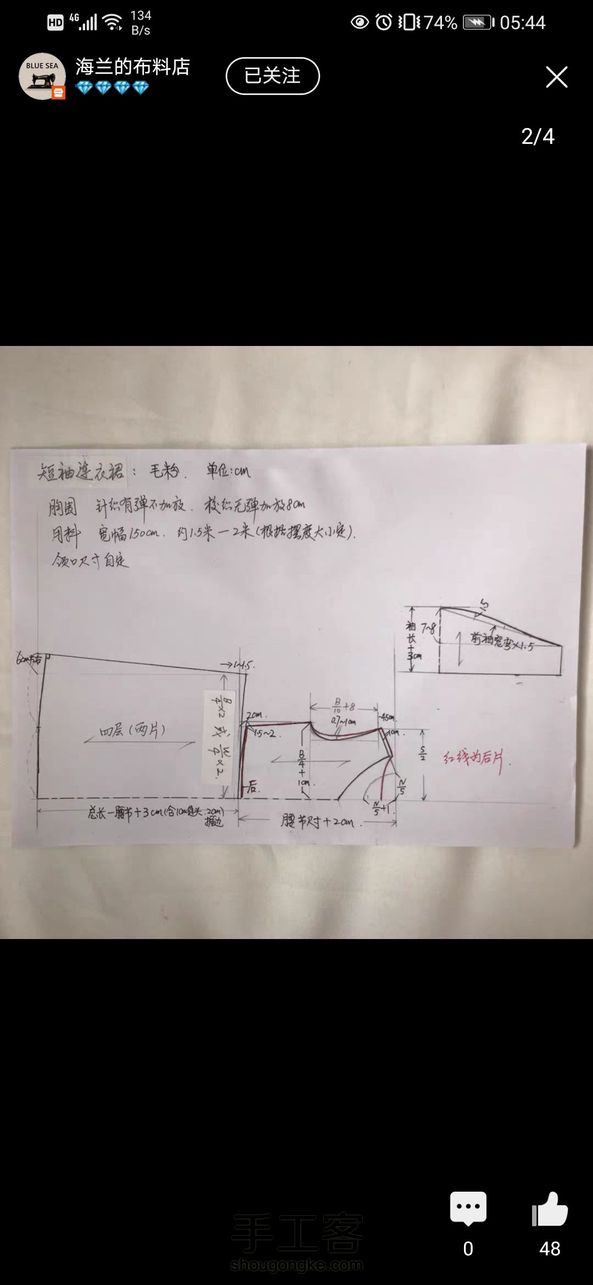 HD 4G 134 B/s 74% 05:44
BLUE SEA
海兰的布料店
已关注
2/4
短袖连衣裙：毛粉. 单位:cm
胸围 针织有弹不加放、梭织无弹加放8cm
用料 宽幅150cm. 约1.5米—2米(根据摆度大小定).
领口尺寸自定
袖长+3cm
7~8
前袖窿弯×1.5
1~1.5
B/4×2 或 W/4×2.
2cm
1.5~2
B/10+8
0.7~1cm
B/4+1cm
1cm
S/2
红线为后片.
四层(两片)
后
N/5
N/5+1
腰节尺寸+2cm.
手工客
shougongke.com
0
48